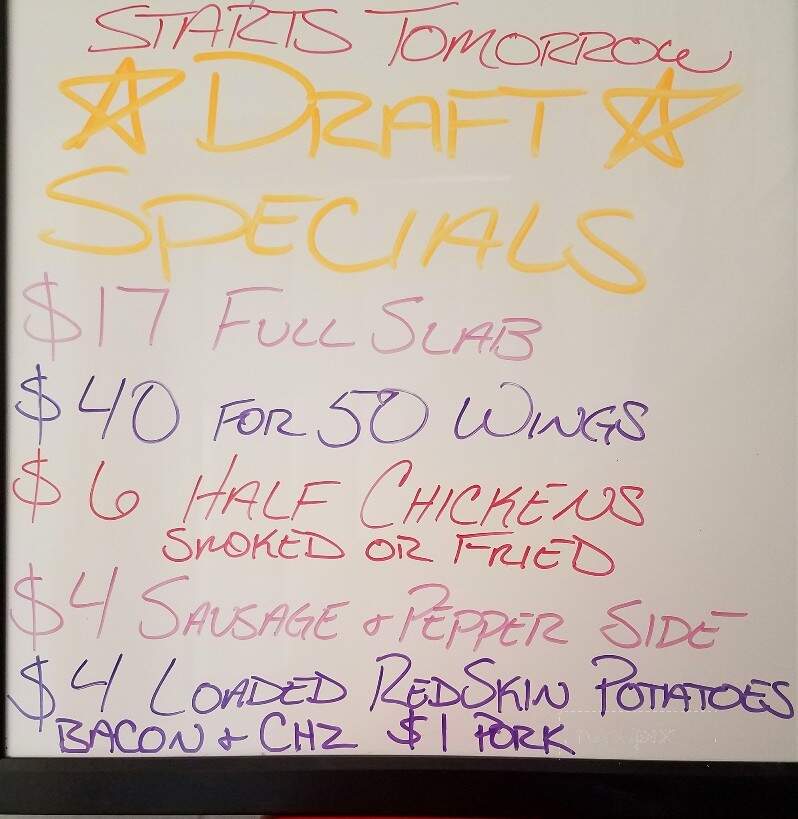 STARTS TOMORROW
DRAFT
SPECIALS
$17 FULL SLAB
$40 FOR 50 WINGS
$6 HALF CHICKENS
SMOKED OR FRIED
$4 SAUSAGE & PEPPER SIDE
$4 LOADED REDSKIN POTATOES
BACON & CHZ $1 PORK